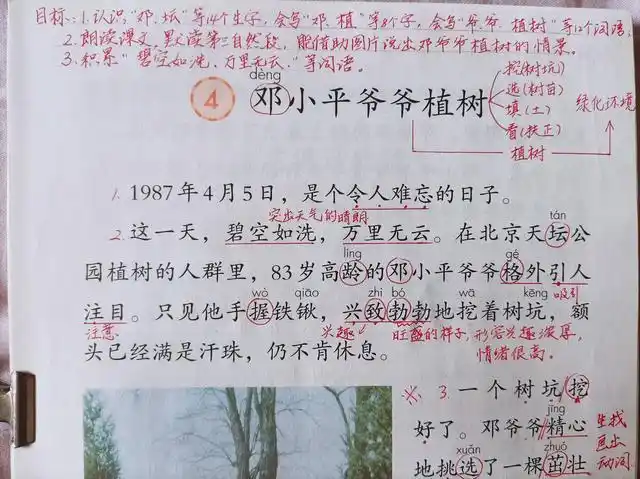 目标:1.认识“邓、坛”等14个生字,会写“邓、植”等8个字,会写“爷爷、植树”等12个词语。
2.朗读课文,默读第三自然段,能借助图片说出邓爷爷植树的情景。
3.积累“碧空如洗、万里无云”等词语。
dèng
4 邓小平爷爷植树
挖(树坑)
选(树苗)
填(土)
看(扶正)
植树
绿化环境
1. 1987年4月5日,是个令人难忘的日子。
突出天气的晴朗
tán
2. 这一天,碧空如洗,万里无云。在北京天坛公
líng gé
园植树的人群里,83岁高龄的邓小平爷爷格外引人
吸引
wò qiāo zhì bó wā kēng
注目。只见他手握铁锹,兴致勃勃地挖着树坑,额
注意 兴趣 旺盛的样子,形容兴趣浓厚,
情绪很高。
头已经满是汗珠,仍不肯休息。
※ 3. 一个树坑挖
jīng
好了。邓爷爷精心
xuǎn zhuó
地挑选了一棵茁壮
生找
画出
动词